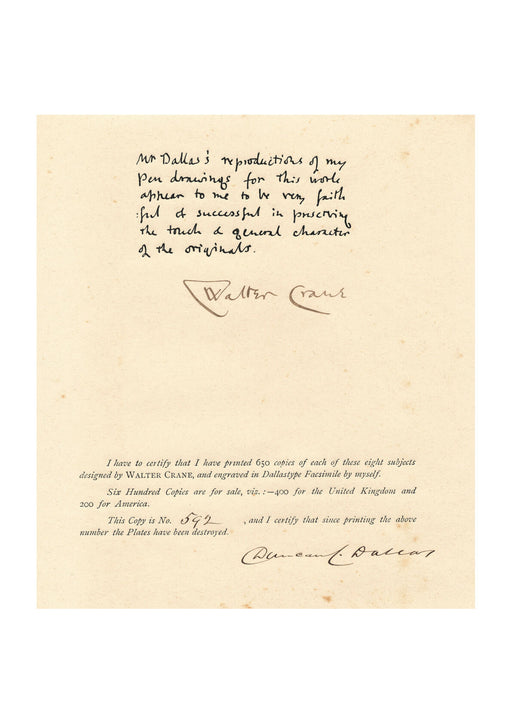 Mr Dallas's reproductions of my
pen drawings for this work
appear to me to be very faith
:ful & successful in preserving
the touch & general character
of the originals.
Walter Crane
I have to certify that I have printed 650 copies of each of these eight subjects
designed by WALTER CRANE, and engraved in Dallastype Facsimile by myself.
Six Hundred Copies are for sale, viz.:—400 for the United Kingdom and
200 for America.
This Copy is No. 592 , and I certify that since printing the above
number the Plates have been destroyed.
Duncan C. Dallas